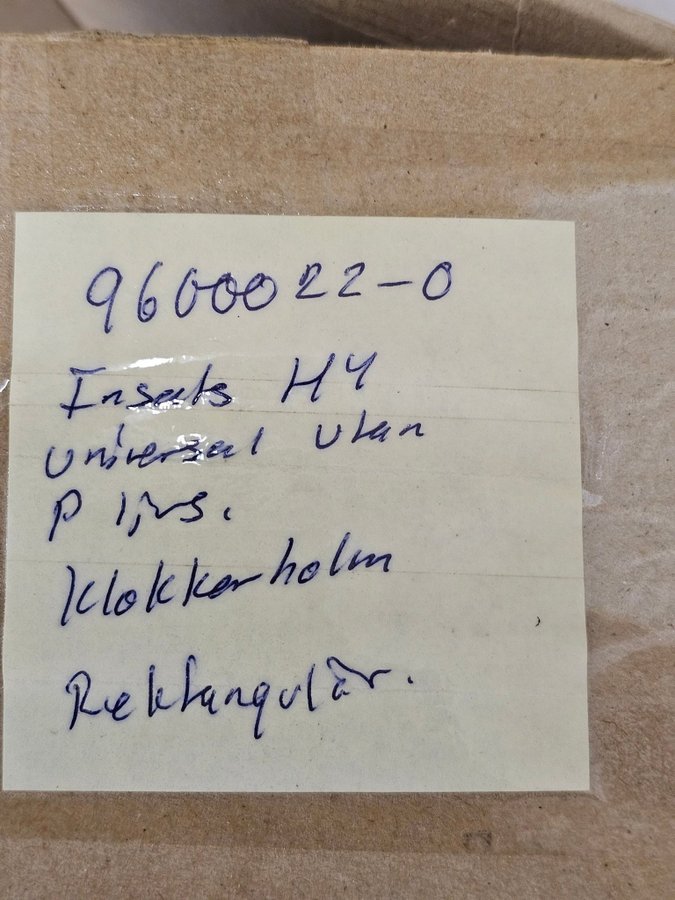 9600022-0
Insats H4
Universal utan
P ljus.
Klokkerholm
Rektangulär.